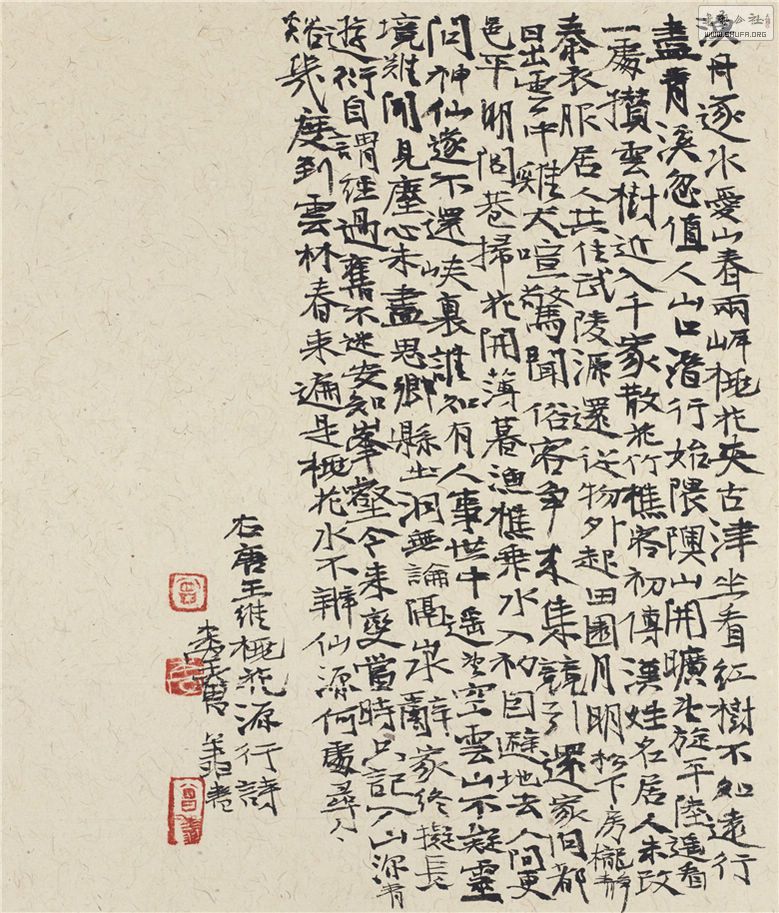 漁舟逐水愛山春兩岸桃花夾古津坐看紅樹不知遠行
盡青溪忽值人山口潛行始隈隩山開曠望旋平陸遙看
一處攢雲樹近入千家散花竹樵客初傳漢姓名居人未改
秦衣服居人共住武陵源還從物外起田園月明松下房櫳靜
日出雲中雞犬喧驚聞俗客爭來集競引還家問都
邑平明閭巷掃花開薄暮漁樵乘水入初因避地去人間更
問神仙遂不還峽裏誰知有人事世中遙望空雲山不疑靈
境難聞見塵心未盡思鄉縣出洞無論隔山水辭家終擬長
遊衍自謂經過舊不迷安知峯壑今來變當時只記入山深青
谿幾度到雲林春來遍是桃花水不辨仙源何處尋
右唐王維桃花源行詩
WWW.SHUFA.ORG